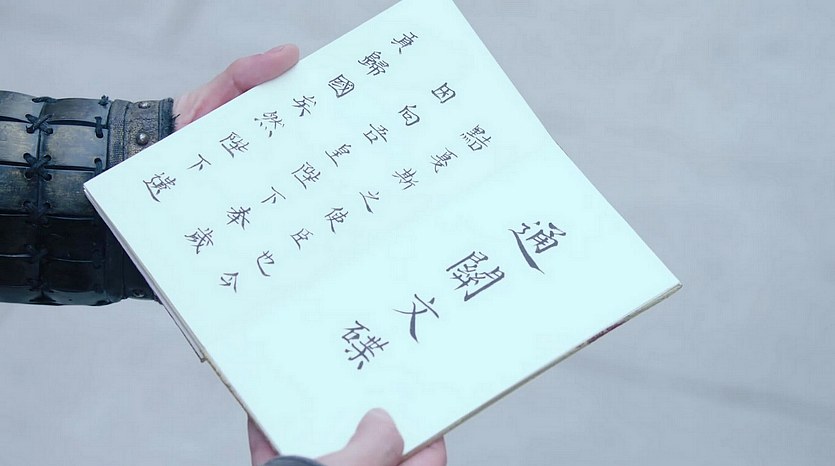 通關文碟
點戛斯之使臣也今
因向吾皇陛下奉歲
貢歸國矣然陛下遠